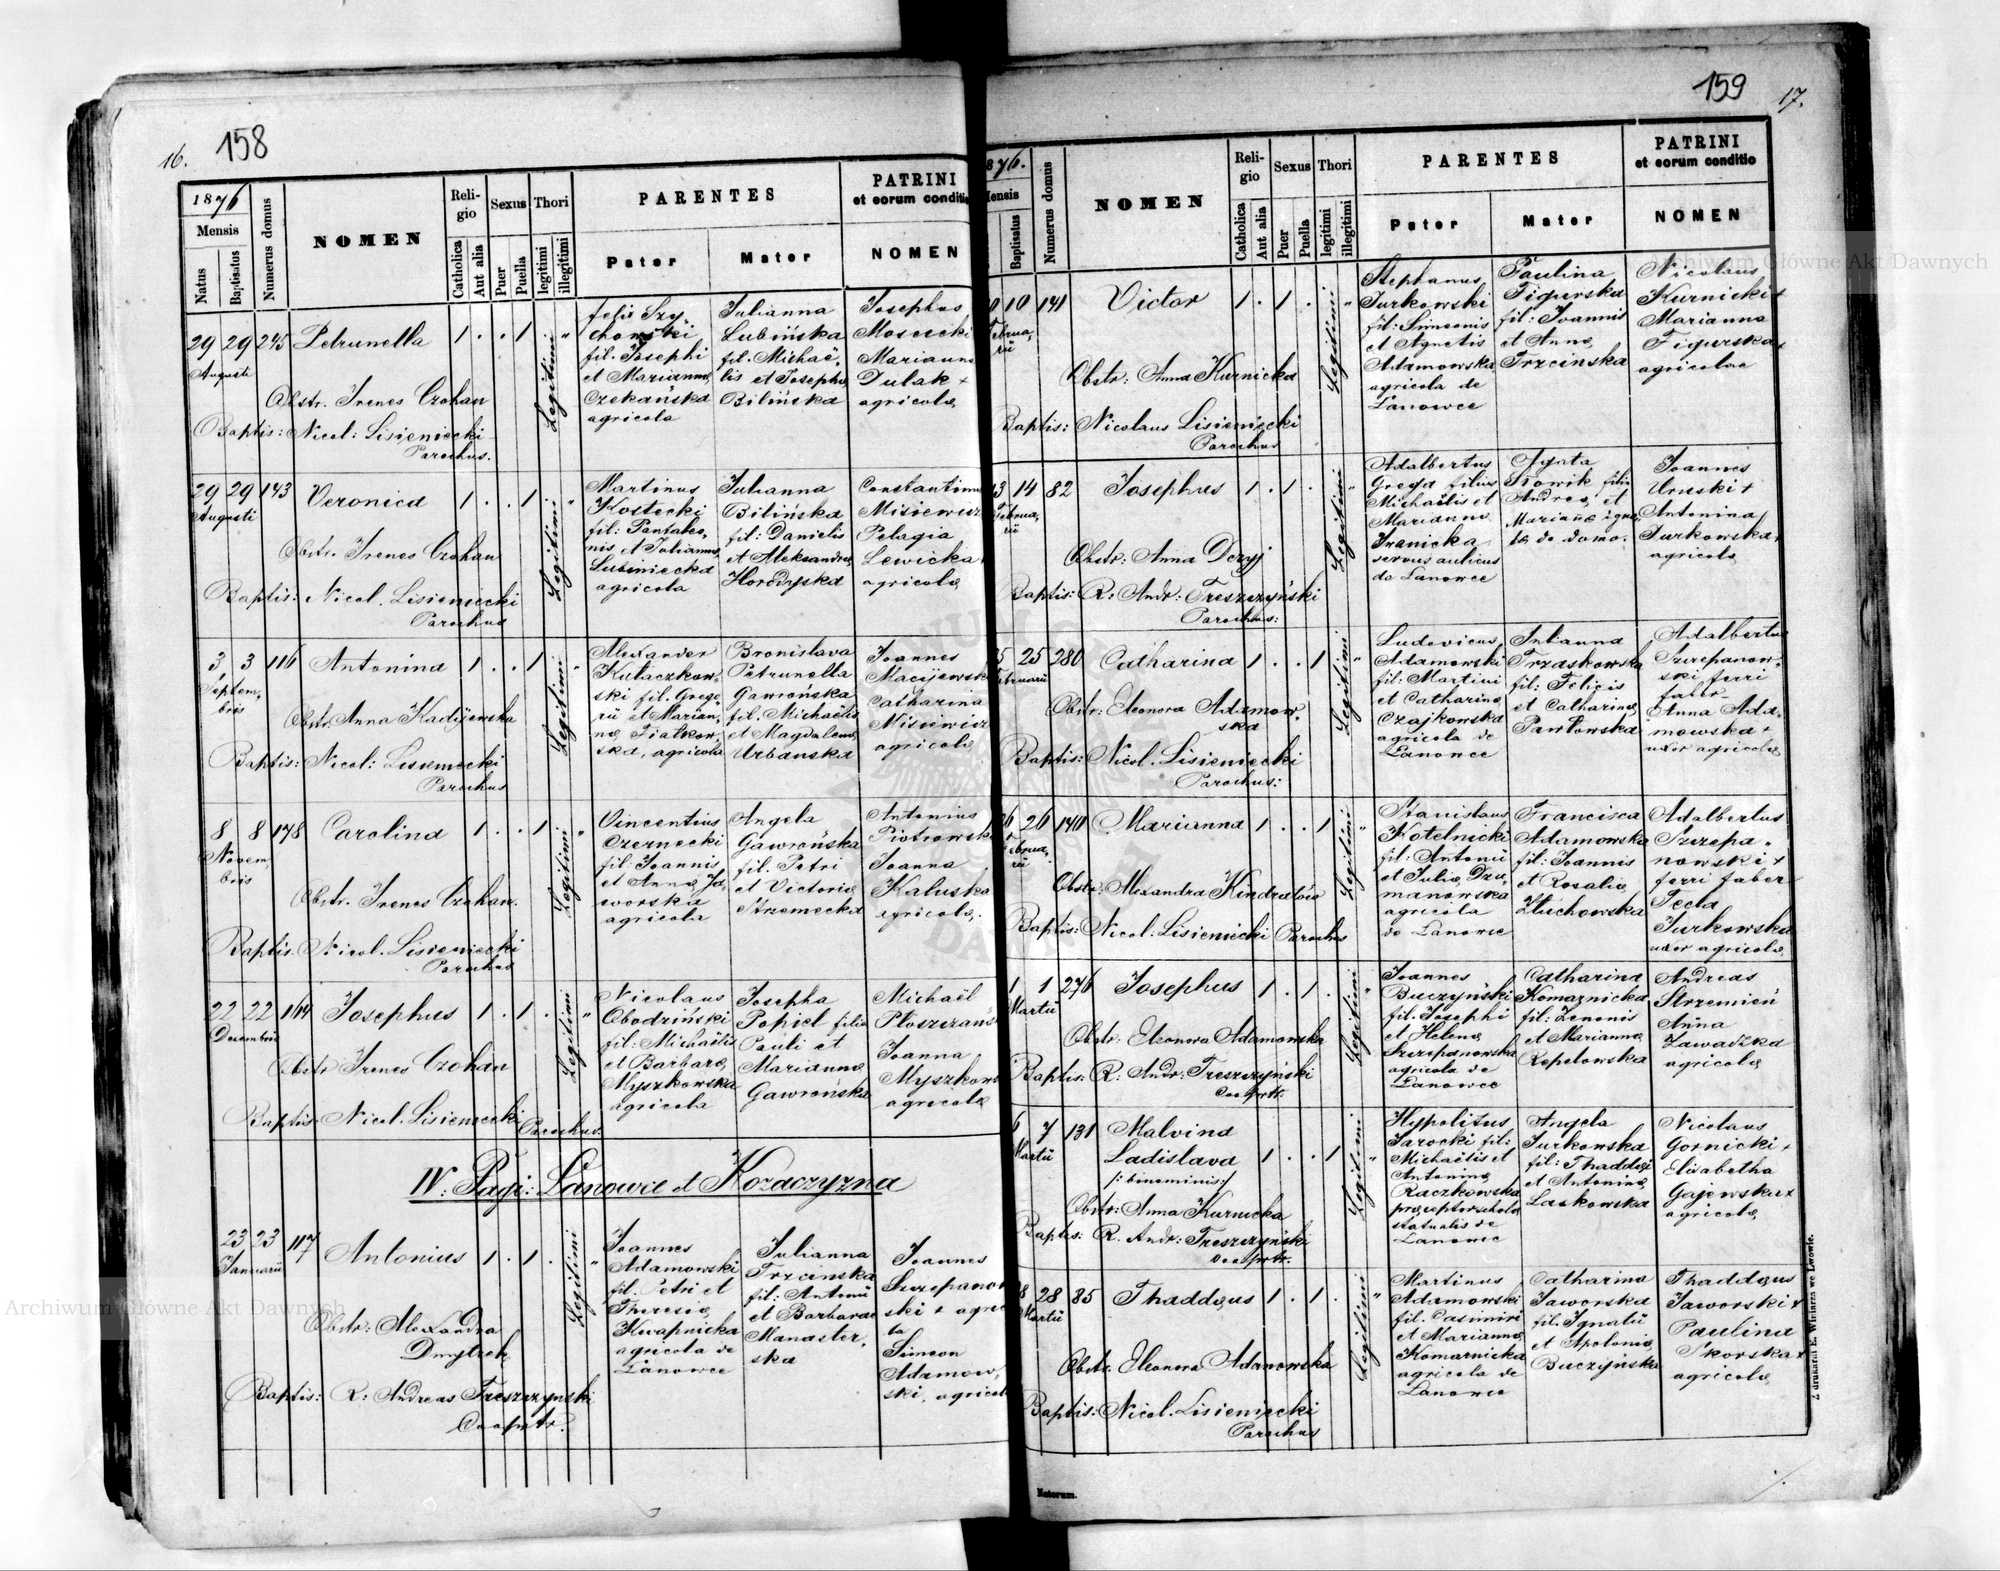 16.
158
1876
Mensis
Natus
Baptisatus
Numerus domus
NOMEN
Reli-
gio
Catholica
Aut alia
Sexus
Puer
Puella
Thori
legitimi
illegitimi
PARENTES
Pater
Mater
PATRINI
et eorum conditio
NOMEN
29 29 245 Petrunella 1 . . 1 Legitimi "
Augusti
Obstr. Irenes Czohan
Baptis: Nicol: Lisieniecki
Parochus.
Felix Szy-
chowski
fil: Josephi
et Marianna
Czekańska
agricola
Julianna
Lubińska
fil. Michaë-
lis et Josepha
Bilińska
Josephus
Mosecki
Marianna
Dulak +
agricolae
29 29 143 Veronica 1 . . 1 Legitimi "
Augusti
Obstr. Irenes Czohan
Baptis: Nicol. Lisieniecki
Parochus
Martinus
Kostecki
fil: Pantaleo-
nis et Julianna
Lubiniecka
agricola
Julianna
Bilińska
fil: Danielis
et Aleksandra
Horodyska
Constantinus
Misiewicz
Pelagia
Lewicka
agricolae
3 3 116 Antonina 1 . . 1 Legitimi "
Septem-
bris
Obstr. Anna Kadijewska
Baptis: Nicol: Lisieniecki
Parochus
Alexander
Kulaczkow-
ski fil. Grego-
rii et Marian-
na Fialkow-
ska, agricola
Bronislava
Petrunella
Gawrońska
fil. Michaëlis
et Magdalena
Urbanska
Joannes
Macijewski
Catharina
Misiewicz
agricolae
8 8 178 Carolina 1 . . 1 Legitimi "
Novem-
bris
Obstr. Irenes Czohan.
Baptis. Nicol. Lisieniecki
Parochus
Vincentius
Czernecki
fil: Joannis
et Anna Ja-
worska
agricola
Angela
Gawrońska
fil. Petri
et Victoria
Strzemecka
Antonius
Piotrowski
Joanna
Kaluska
agricolae.
22 22 164 Josephus 1 . 1 . Legitimi "
Decembris
Obstr Irenes Czohan
Baptis: Nicol. Lisieniecki Parochus.
Nicolaus
Obodziński
fil: Michaëlis
et Barbara
Myszkowska
agricola
Josepha
Popiel filia
Pauli et
Marianna
Gawrońska
Michaël
Ploszczańs
Joanna
Myszkow
agricolae
IV. Pagi: Lanowce et Kozaczyzna
23 23 117 Antonius 1 . 1 . Legitimi "
Januarii
Obstr: Alexandra
Dmytrek
Baptis: R: Andreas Treszczynski
Cooprtr.
Joannes
Adamowski
fil. Petri et
Theresia
Kwapnicka
agricola de
Lanowce
Julianna
Trzcinska
fil: Antonii
et Barbarae
Manaster-
ska
Joannes
Szczepanow
ski + agrico
la
Simeon
Adamow-
ski, agricol
159
17.
876.
Mensis
Baptisatus
Numerus domus
NOMEN
Reli-
gio
Catholica
Aut alia
Sexus
Puer
Puella
Thori
legitimi
illegitimi
PARENTES
Pater
Mater
PATRINI
et eorum conditio
NOMEN
10 10 141 Victor 1 . 1 . Legitimi "
Februa-
rii
Obstr: Anna Kurnicka
Baptis: Nicolaus Lisieniecki
Parochus
Stephanus
Jurkowski
fil: Simeonis
et Agnetis
Adamowska
agricola de
Lanowce
Paulina
Figurska
fil: Joannis
et Anna
Trzcinska
Nicolaus
Kurnicki +
Marianna
Figurska +
agricolae
13 14 82 Josephus 1 . 1 . Legitimi "
Februa-
rii
Obstr: Anna Dezyj
Baptis: R: Andr: Treszczyński
Parochus:
Adalbertus
Grega filius
Michaëlis et
Marianna
Iranicka
servus aulicus
de Lanowce
Agata
Slowik filia
Andrea et
Mariana igno-
ta de domo.
Joannes
Uruski +
Antonina
Jurkowska +
agricolae
25 25 280 Catharina 1 . . 1 Legitimi "
Februarii
Obstr: Eleonora Adamow-
ska
Baptis: Nicol. Lisieniecki
Parochus:
Ludovicus
Adamowski
fil: Martini
et Catharina
Czajkowska
agricola de
Lanowce
Julianna
Trzaskowska
fil: Felicis
et Catharina
Pawlowska
Adalbertus
Szczepanow-
ski, ferri
faber
Anna Ada-
mowska +
uxor agricolae
26 26 140 Marianna 1 . . 1 Legitimi "
Februa-
rii
Obstr: Alexandra Kindratów
Baptis: Nicol. Lisieniecki Parochus
Stanislaus
Kotelnicki
fil: Antonii
et Julia Dzu-
manowska
agricola
de Lanowce
Francisca
Adamowska
fil: Joannis
et Rosalia
Zluchowska
Adalbertus
Szczepa-
nowski +
ferri faber
Tecla
Jurkowska
uxor agricolae
1 1 276 Josephus 1 . 1 . Legitimi "
Martii
Obstr: Eleonora Adamowska
Baptis: R: Andr: Treszczyński
Cooprtr.
Joannes
Buczyński
fil. Josephi
et Helena
Szczepanowska
agricola de
Lanowce
Catharina
Komaznicka
fil: Zenonis
et Marianna
Repelowska
Andreas
Strzemień
Anna
Zawadzka
agricolae
6 7 131 Malvina
Ladislava 1 . . 1 Legitimi "
Martii
/: binominis:/
Obstr: Anna Kurnicka
Baptis: R. Andr: Treszczyński
Cooprtr.
Hypolitus
Jarocki fil:
Michaëlis et
Antonina
Raczkowska
praeceptor schola
statualis de
Lanowce
Angela
Jurkowska
fil: Thaddaei
et Antonina
Laskowska
Nicolaus
Gornicki +
Elisabetha
Gajewska +
agricolae
28 28 85 Thaddaeus 1 . 1 . Legitimi "
Martii
Obstr: Eleonora Adamowska
Baptis: Nicol. Lisieniecki
Parochus
Martinus
Adamowski
fil. Casimiri
et Marianna
Komarnicka
agricola de
Lanowce
Catharina
Jaworska
fil. Ignatii
et Apolonia
Buczynska
Thaddaeus
Jaworski +
Paulina
Skorska +
agricolae
Z drukarni E. Winiarza we Lwowie.
Natorum.
Archiwum Główne Akt Dawnych
Archiwum Główne Akt Dawnych